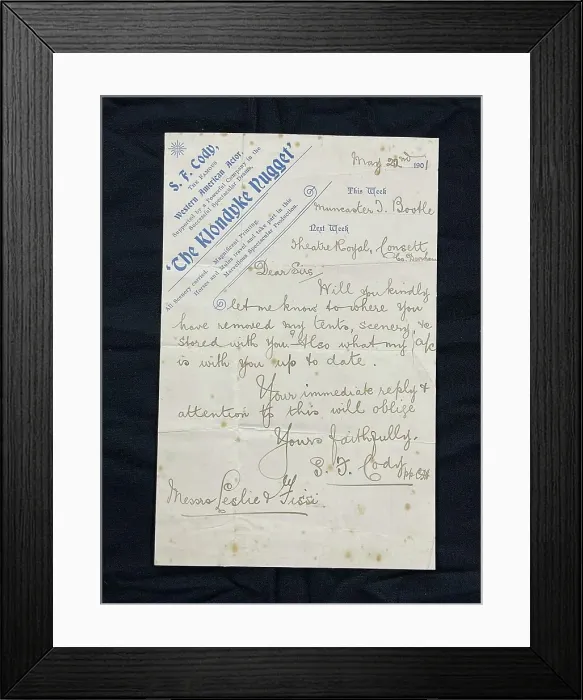 S. F. Cody,
THE FAMOUS
Western American Actor,
Supported by a Powerful Company in the
Successful Spectacular Drama,
'The Klondyke Nugget'
All Scenery carried. Magnificent Printing.
Horses and Mules travel and take part in this
Marvellous Spectacular Production.
May 22nd 1901
This Week
Muncaster T. Bootle
Next Week
Theatre Royal, Consett
Dear Sirs
Will you kindly
let me know to where you
have removed my tents, scenery, &c
stored with you? Also what my a/c
is with you up to date.
Your immediate reply &
attention to this will oblige
Yours faithfully.
S. F. Cody
Messrs Leslie & Tissi.